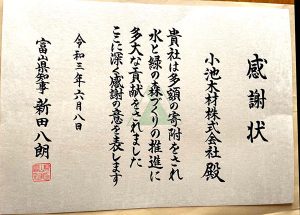 感謝状
小池木材株式会社 殿
貴社は多額の寄附をされ
水と緑の森づくりの推進に
多大な貢献をされました
ここに深く感謝の意を表します
令和三年六月八日
富山県知事 新田八朗